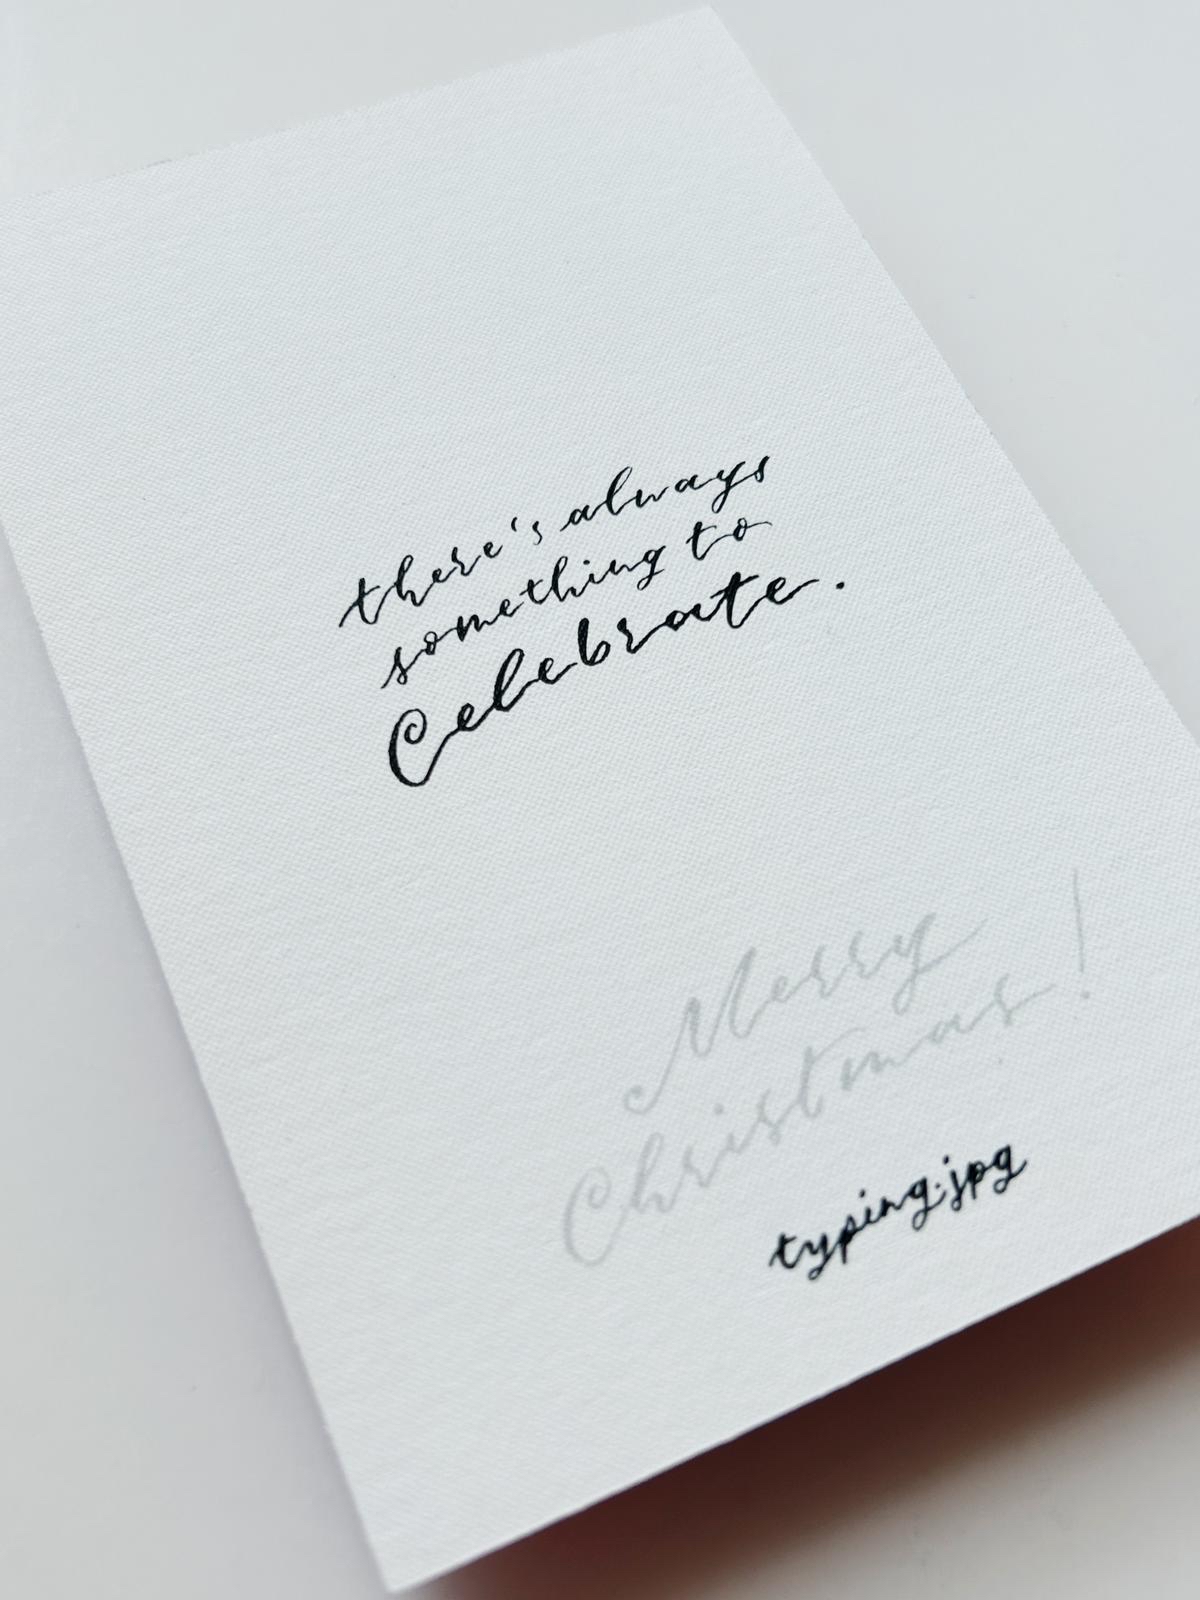 there's always
something to
Celebrate.
Merry
Christmas!
typing.jpg